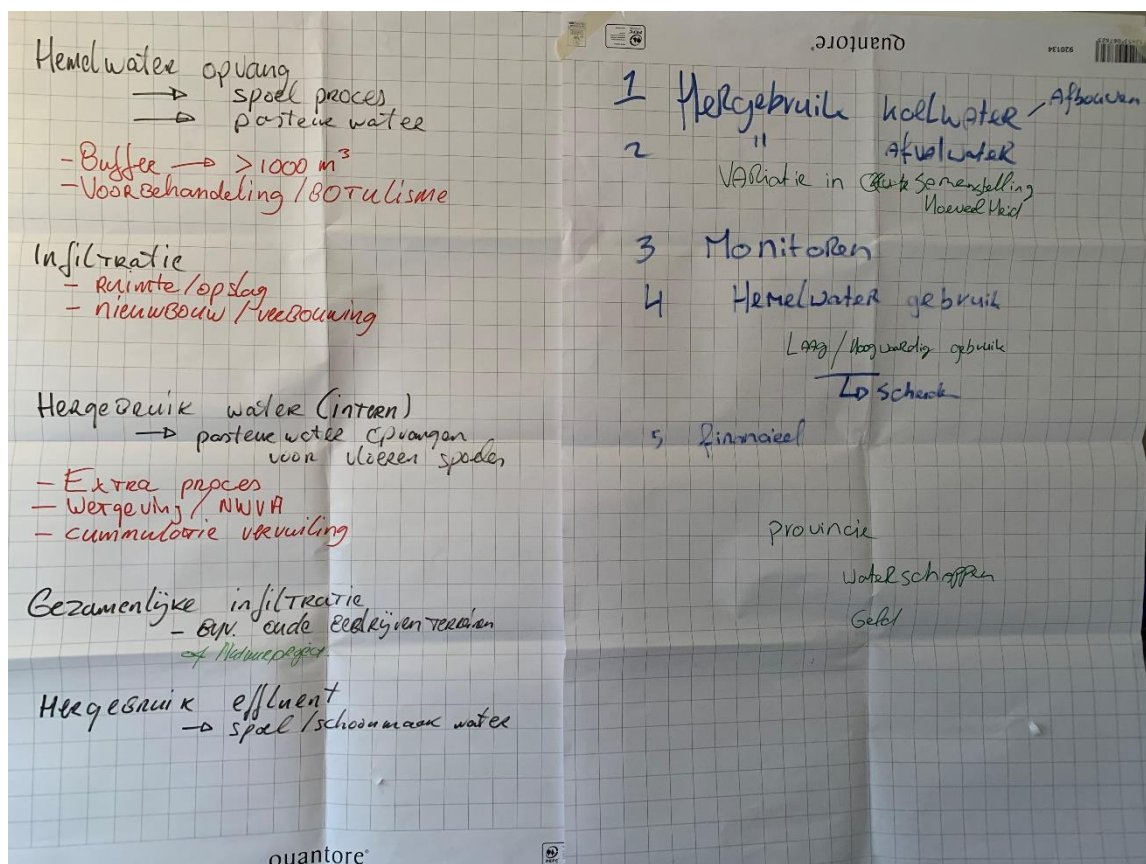 Hemelwater opvang
→ spoel proces
→ pasteur water
- Buffer → > 1000 m³
- Voorbehandeling / BOTulisme
Infiltratie
- Ruimte / opslag
- nieuwbouw / verbouwing
Hergebruik water (intern)
→ pasteur water opvangen
voor vloeren spoelen
- Extra proces
- Wetgeving / NWVA
- cummulatie vervuiling
Gezamenlijke infiltratie
- Bijv. oude Bedrijventerreinen
of
Hergebruik effluent
→ spoel / schoonmaak water
quantore®
quantore
920134
1 Hergebruik koelwater / Afbouwen
2 " Afvalwater
VARiatie in Samenstelling
Hoeveelheid
3 Monitoren
4 Hemelwater gebruik
Laag / Hoogwaardig gebruik
5 financieel
provincie
waterschappen
Geld